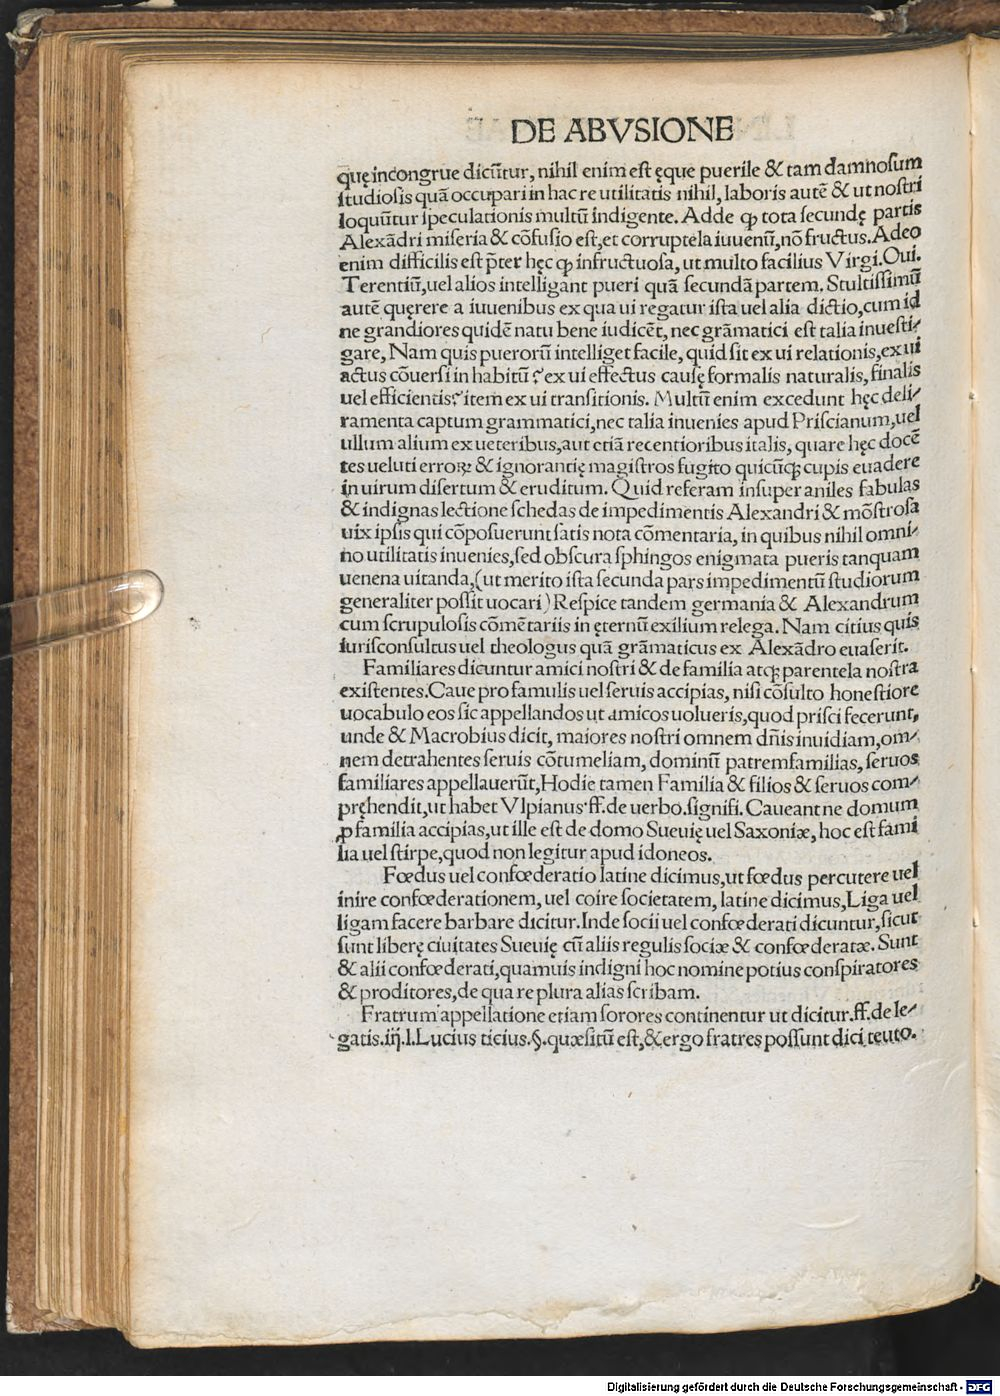 DE ABVSIONE
quę incongrue dicũtur, nihil enim est ęque puerile & tam damnosum
studiosis quã occupari in hac re utilitatis nihil, laboris autẽ & ut nostri
loquũtur speculationis multũ indigente. Adde ꝙ tota secundę partis
Alexãdri miseria & cõfusio est, et corruptela iuuenũ, nõ fructus. Adeo
enim difficilis est p̃ter hęc ꝙ infructuosa, ut multo facilius Virgi. Oui.
Terentiũ, uel alios intelligant pueri quã secundã partem. Stultissimũ
autẽ quęrere a iuuenibus ex qua ui regatur ista uel alia dictio, cum id
ne grandiores quidẽ natu bene iudicẽt, nec grãmatici est talia inuesti⸗
gare, Nam quis puerorũ intelliget facile, quid sit ex ui relationis, ex ui
actus cõuersi in habitũ? ex ui effectus causę formalis naturalis, finalis
uel efficientis? item ex ui transitionis. Multũ enim excedunt hęc deli⸗
ramenta captum grammatici, nec talia inuenies apud Priscianum, uel
ullum alium ex ueteribus, aut etiã recentioribus italis, quare hęc docẽ
tes ueluti erroꝝ & ignorantię magistros fugito quicũqꝫ cupis euadere
in uirum disertum & eruditum. Quid referam insuper aniles fabulas
& indignas lectione schedas de impedimentis Alexandri & mõstrosa
uix ipsis qui cõposuerunt satis nota cõmentaria, in quibus nihil omni⸗
no utilitatis inuenies, sed obscura sphingos enigmata pueris tanquam
uenena uitanda, (ut merito ista secunda pars impedimentũ studiorum
generaliter possit uocari) Respice tandem germania & Alexandrum
cum scrupulosis cõmẽtariis in ęternũ exilium relega. Nam citius quis
iurisconsultus uel theologus quã grãmaticus ex Alexãdro euaserit.
Familiares dicuntur amici nostri & de familia atqꝫ parentela nostra
existentes. Caue pro famulis uel seruis accipias, nisi cõsulto honestiore
uocabulo eos sic appellandos ut amicos uolueris, quod prisci fecerunt,
unde & Macrobius dicit, maiores nostri omnem dñis inuidiam, om⸗
nem detrahentes seruis cõtumeliam, dominũ patremfamilias, seruos
familiares appellauerũt, Hodie tamen Familia & filios & seruos com⸗
pręhendit, ut habet Vlpianus. ff. de uerbo. signifi. Caueant ne domum
ꝓ familia accipias, ut ille est de domo Sueuię uel Saxoniæ, hoc est fami
lia uel stirpe, quod non legitur apud idoneos.
Fœdus uel confœderatio latine dicimus, ut fœdus percutere uel
inire confœderationem, uel coire societatem, latine dicimus, Liga uel
ligam facere barbare dicitur. Inde socii uel confœderati dicuntur, sicut
sunt liberę ciuitates Sueuię cũ aliis regulis sociæ & confœderatæ. Sunt
& alii confœderati, quamuis indigni hoc nomine potius conspiratores
& proditores, de qua re plura alias scribam.
Fratrum appellatione etiam sorores continentur ut dicitur. ff. de le⸗
gatis. iij. l. Lucius titius. §. quæsitũ est, & ergo fratres possunt dici teuto.
Digitalisierung gefördert durch die Deutsche Forschungsgemeinschaft - DFG